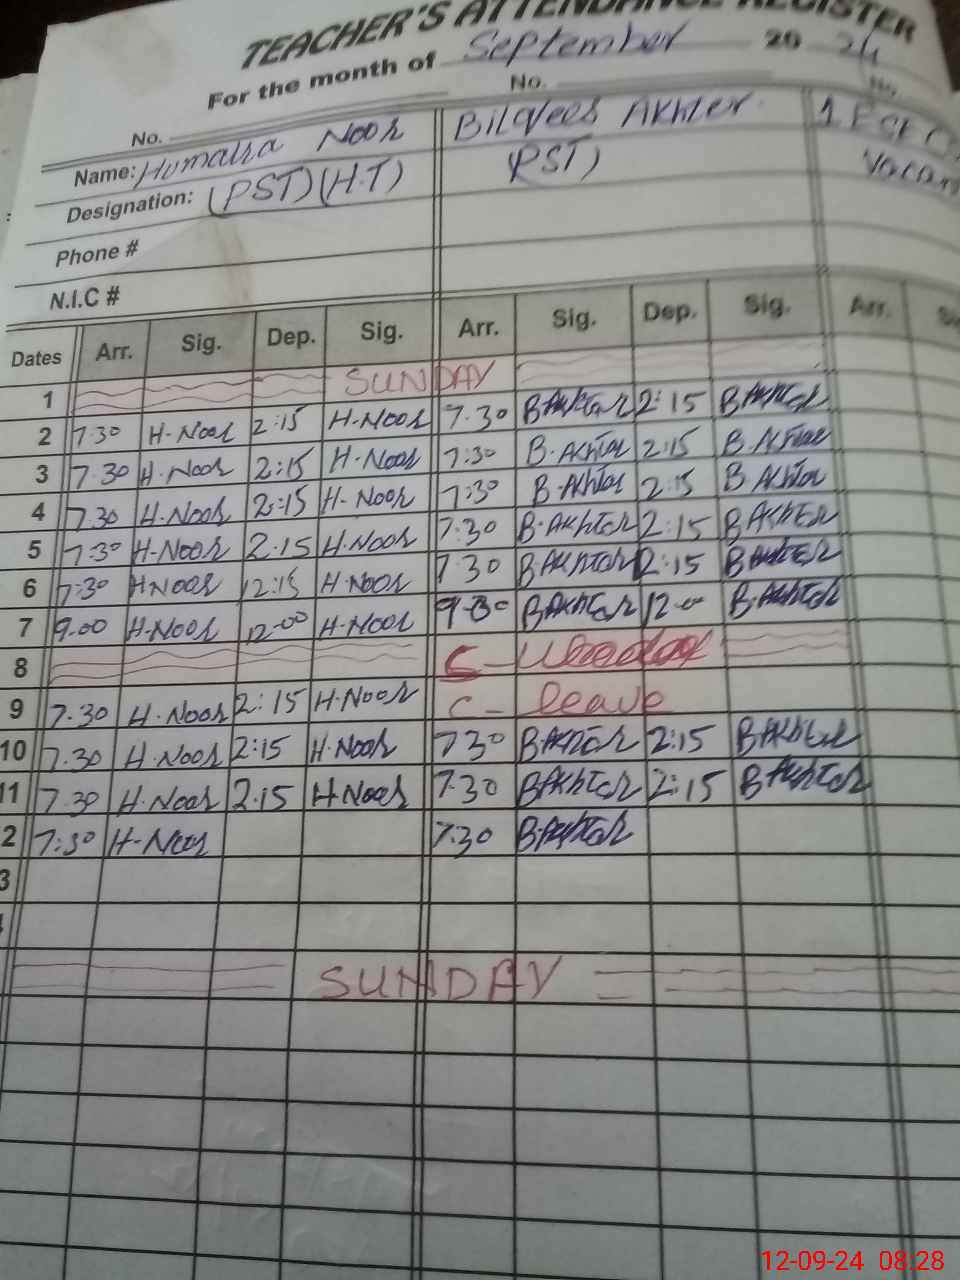 TEACHER'S ATTENDANCE REGISTER
For the month of September 20 24
No. No. No.
Name: Humaira Noor Bilqees Akhter 1 ESE
Designation: (PST)(H.T) (PST) Vacan
Phone #
N.I.C #
Dates Arr. Sig. Dep. Sig. Arr. Sig. Dep. Sig. Arr. S
1 SUNDAY
2 7.30 H-Noor 2:15 H-Noor 7.30 B Akhter 2:15 B Akhter
3 7.30 H-Noor 2:15 H-Noor 7:30 B-Akhter 2:15 B.Akhter
4 7.30 H-Noor 2:15 H-Noor 7:30 B-Akhter 2:15 B Akhter
5 7:30 H-Noor 2.15 H.Noor 7:30 B-Akhter 2:15 B Akhter
6 7:30 H Noor 12:15 H-Noor 7.30 B Akhter 2:15 B Akhter
7 9.00 H-Noor 12-00 H-Noor 9-30 B Akhter 12-00 B-Akhter
8
9 7.30 H.Noor 2:15 H-Noor C- leave
10 7.30 H.Noor 2:15 H.Noor 7 30 B Akhter 2:15 B Akhter
11 7.30 H.Noor 2.15 H.Noor 7.30 B Akhter 2:15 B Akhter
2 7:30 H-Noor 7.30 B.Akhter
3
SUNDAY
12-09-24 08:28